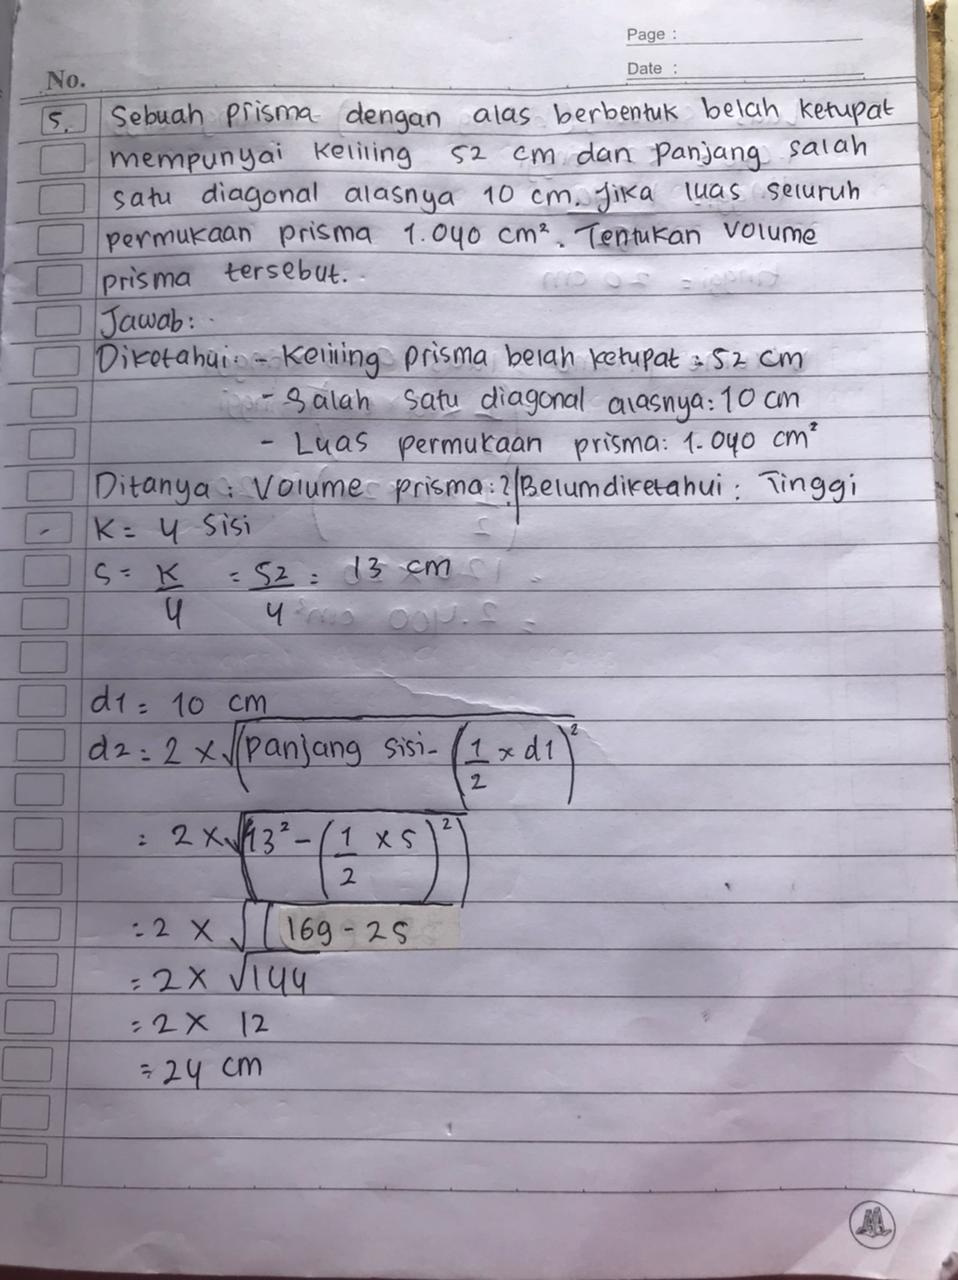 Page :
Date :
No.
5. Sebuah prisma dengan alas berbentuk belah ketupat
mempunyai keliling 52 cm dan panjang salah
satu diagonal alasnya 10 cm. Jika luas seluruh
permukaan prisma 1.040 cm². Tentukan volume
prisma tersebut.
Jawab:
Diketahui: - Keliling prisma belah ketupat : 52 cm
- Salah satu diagonal alasnya: 10 cm
- Luas permukaan prisma: 1.040 cm²
Ditanya : Volume prisma: ? | Belum diketahui : Tinggi
K = 4 sisi
S = K/4 = 52/4 = 13 cm
d1 = 10 cm
d2 = 2 × √(panjang sisi - (1/2 × d1)²
= 2 × √(13² - (1/2 × 5)²)
= 2 × √(169 - 25
= 2 × √144
= 2 × 12
= 24 cm